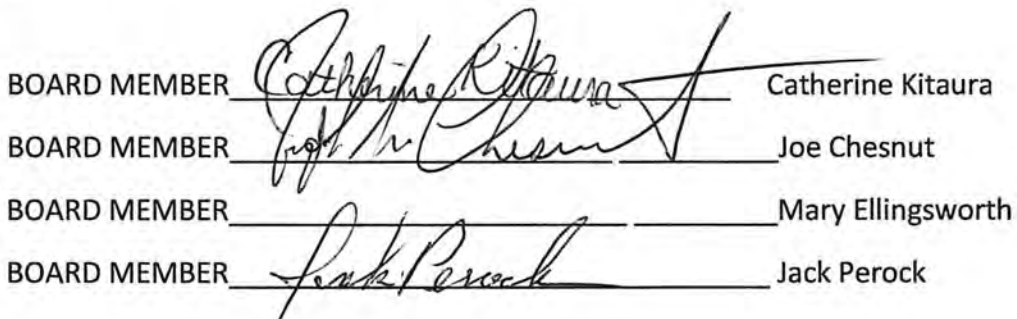 BOARD MEMBER Catherine Kitaura Catherine Kitaura
BOARD MEMBER Chesnut Joe Chesnut
BOARD MEMBER Mary Ellingsworth
BOARD MEMBER Jack Perock Jack Perock